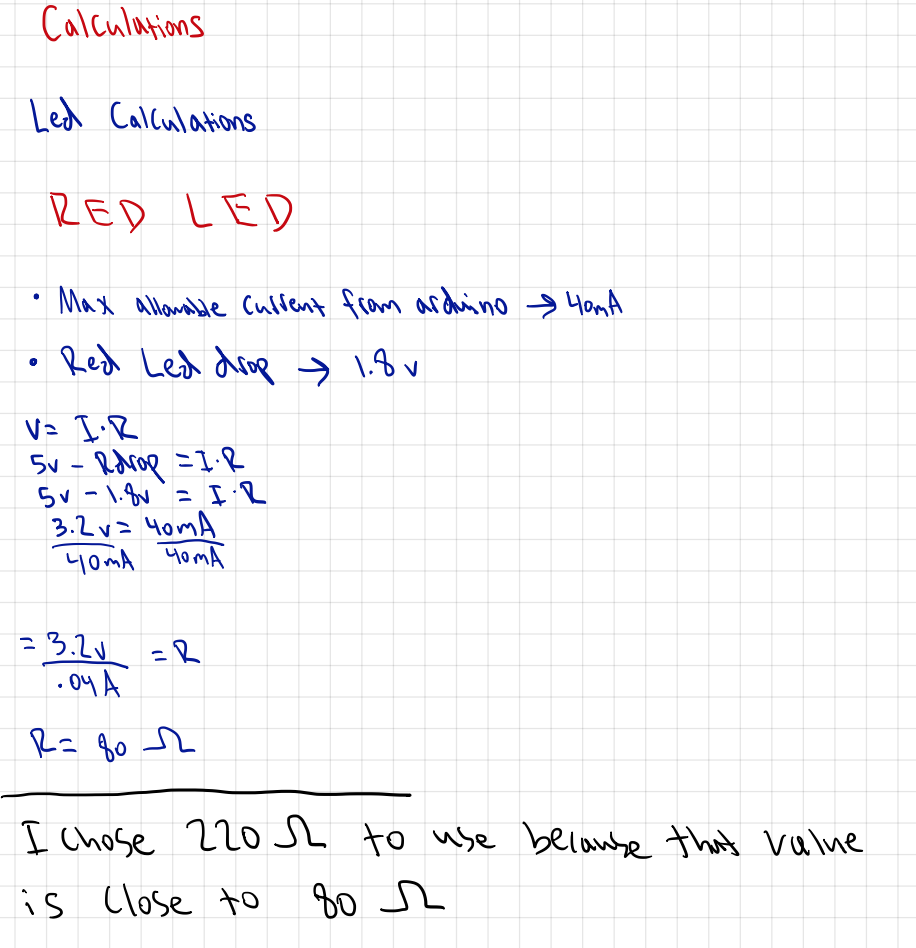 Calculations
Led Calculations
RED LED
• Max allowable current from arduino → 40mA
• Red Led drop → 1.8v
V= I·R
5v - Rdrop = I·R
5v - 1.8v = I·R
3.2v = 40mA
40mA 40mA
= 3.2v = R
.04A
R= 80 Ω
I chose 220 Ω to use because that value
is close to 80 Ω